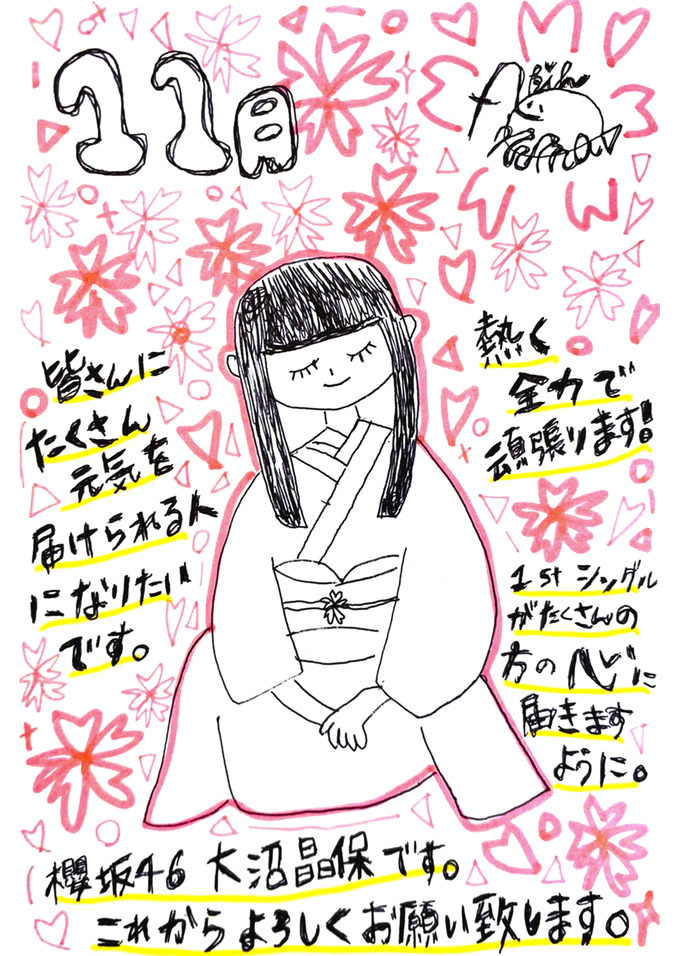 11月
皆さんに
たくさん
元気を
届けられる人
になりたい
です。
熱く
全力で
頑張ります!
1stシングル
がたくさんの
方の心に
届きます
ように。
櫻坂46 大沼晶保です。
これからよろしくお願い致します。